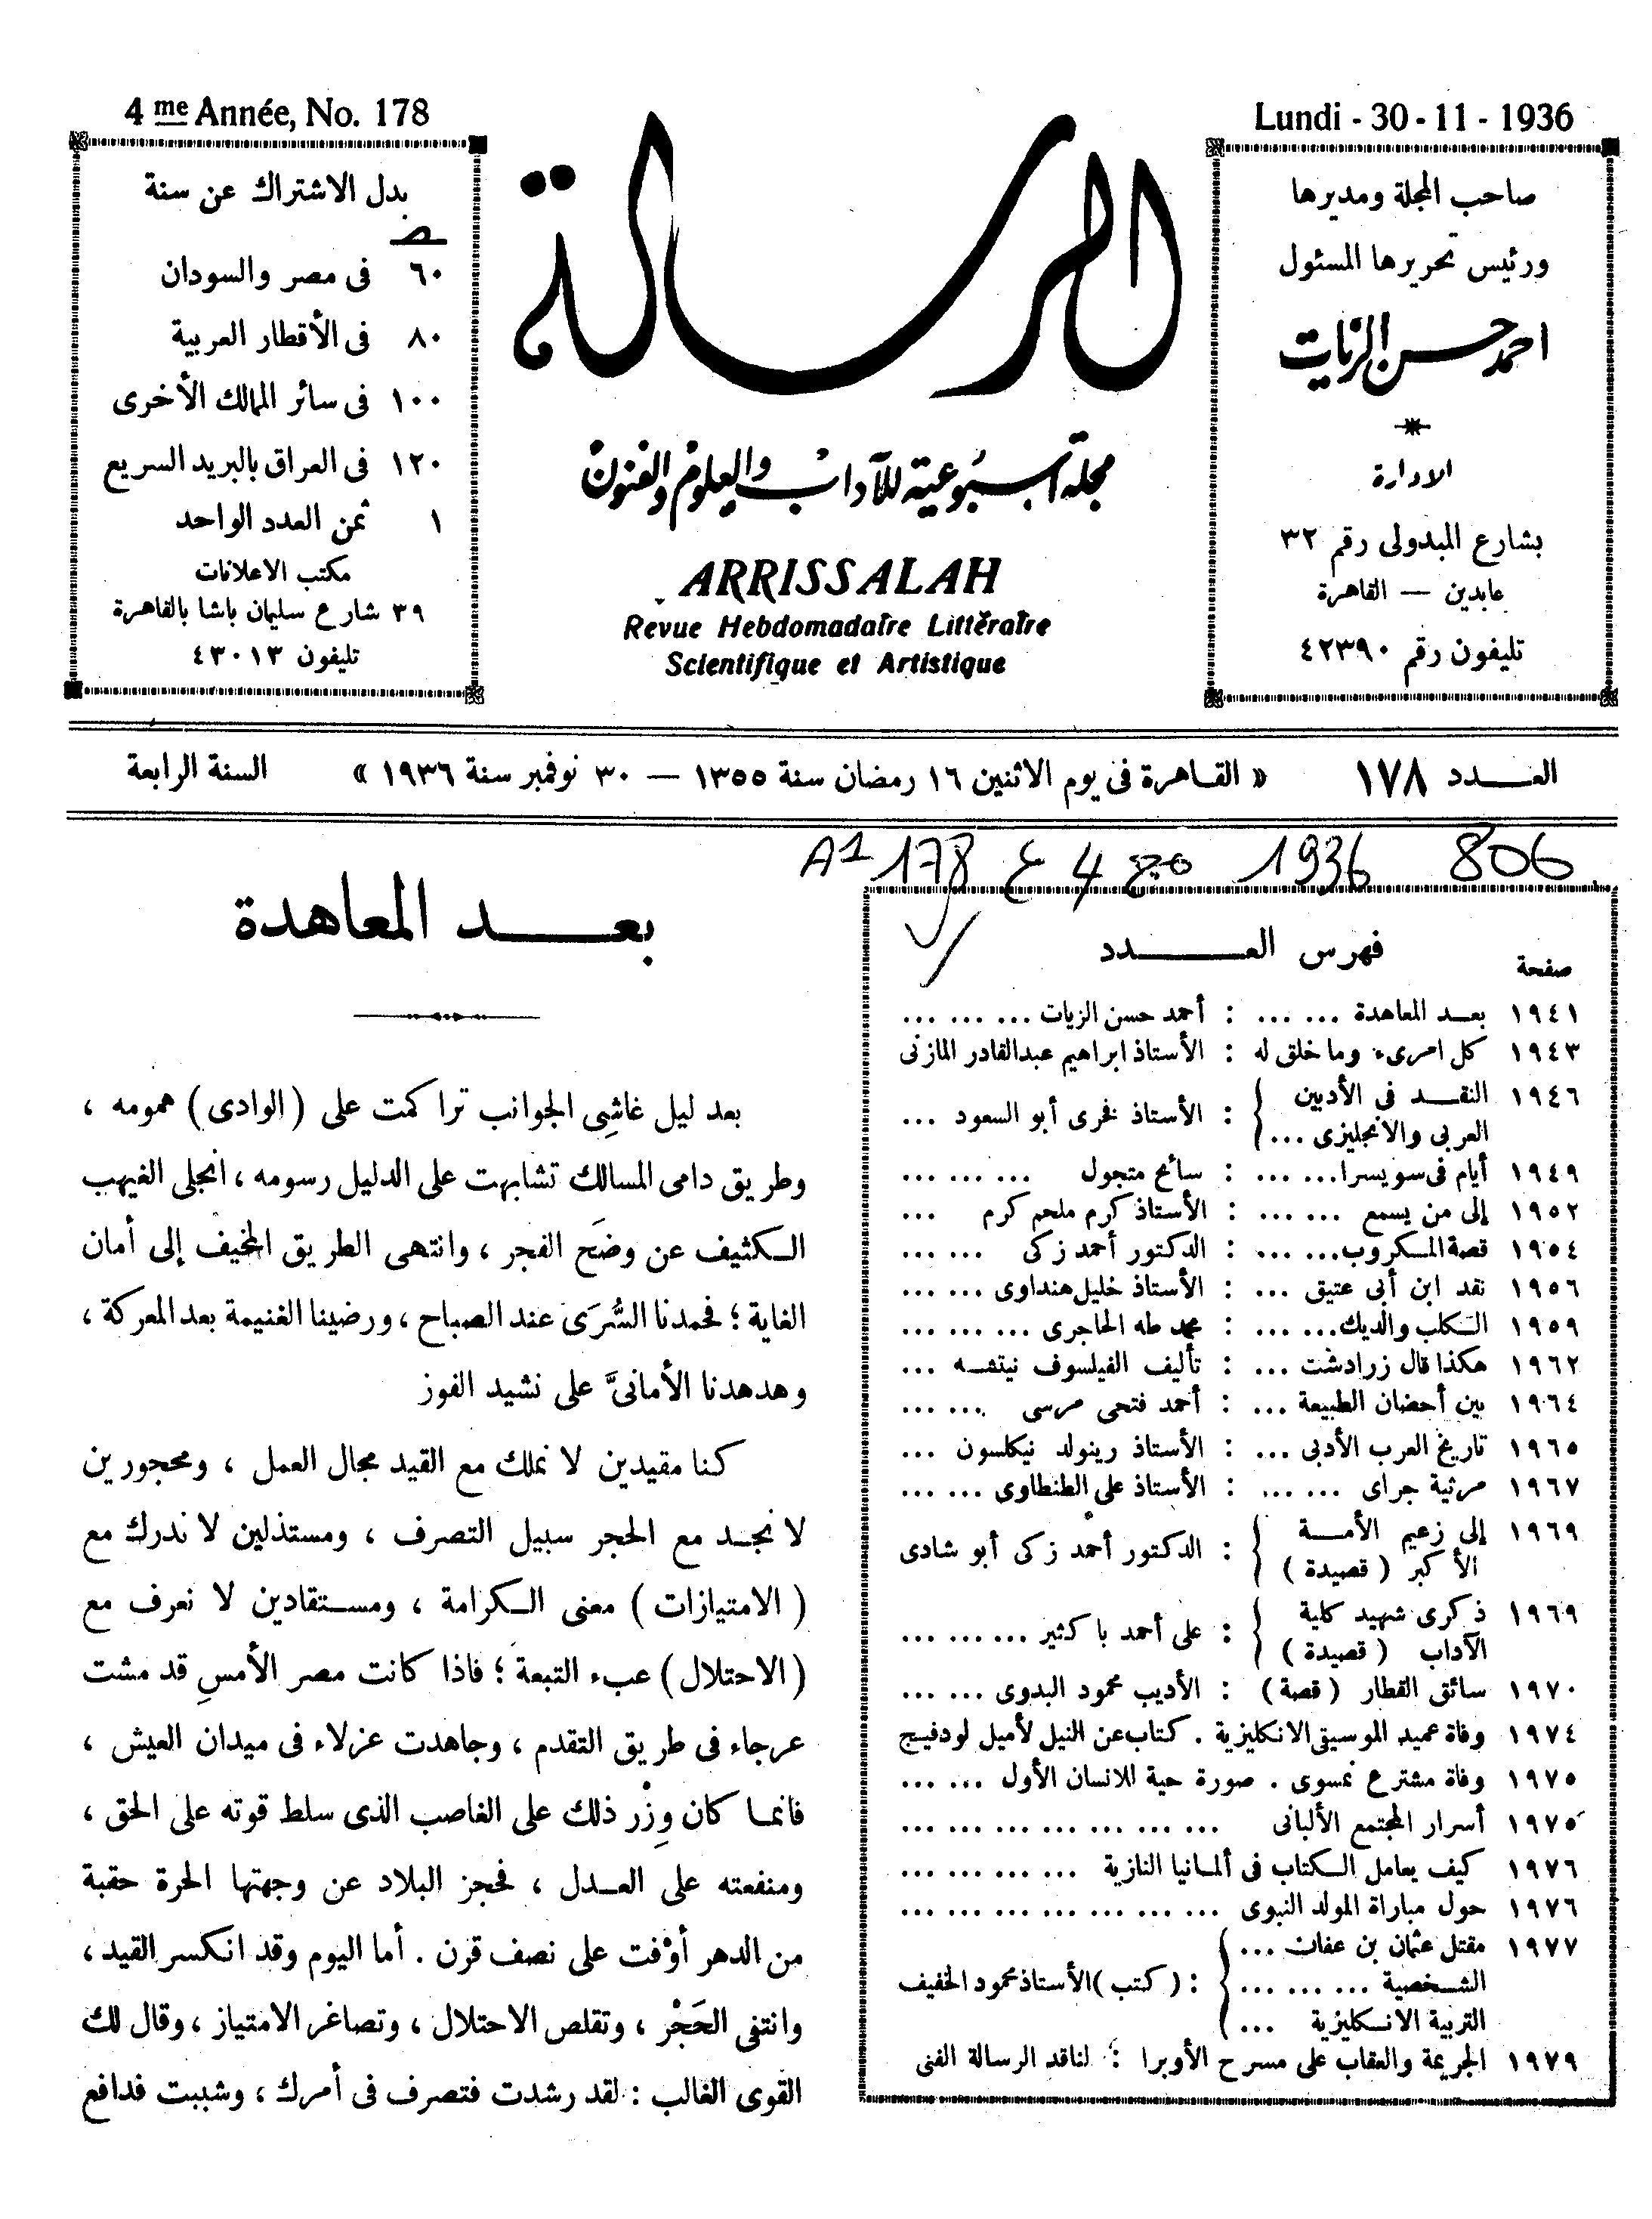 Lundi - 30 - 11 - 1936
صاحب المجلة ومديرها
ورئيس تحريرها المسئول
احمد حسن الزيات
الادارة
بشارع المبدولى رقم ٣٢
عابدين — القاهرة
تليفون رقم ٤٢٣٩٠
الرسالة
مجلة أسبوعية للآداب والعلوم والفنون
ARRISSALAH
Revue Hebdomadaire Littéraire
Scientifique et Artistique
4 me Année, No. 178
بدل الاشتراك عن سنة
٦٠ فى مصر والسودان
٨٠ فى الأقطار العربية
١٠٠ فى سائر الممالك الأخرى
١٢٠ فى العراق بالبريد السريع
١ ثمن العدد الواحد
مكتب الاعلانات
٣٩ شارع سليمان باشا بالقاهرة
تليفون ٤٣٠١٣
العـــدد ١٧٨ « القـاهرة فى يوم الاثنين ١٦ رمضان سنة ١٣٥٥ — ٣٠ نوفمبر سنة ١٩٣٦ » السنة الرابعة
178 4 1936 806
فهرس العـــدد
صفحة
١٩٤١ بعـد المعاهدة ... ... : أحمد حسن الزيات ... ... ...
١٩٤٣ كل امرىء وما خلق له : الأستاذ ابراهيم عبدالقادر المازنى
١٩٤٦ النقـــد فى الأدبين
العربى والانجليزى ... : الأستاذ فخرى أبو السعود ...
١٩٤٩ أيام فى سويسرا... ... : سائح متجول ... ... ...
١٩٥٢ إلى من يسمع ... ... : الأستاذ كرم ملحم كرم ...
١٩٥٤ قصة المـكروب... ... : الدكتور أحمد زكى ... ...
١٩٥٦ نقد ابن أبى عتيق ... : الأستاذ خليل هنداوى ... ...
١٩٥٩ الـكلب والديك... ... : محمد طه الحاجرى ... ... ...
١٩٦٢ هكذا قال زرادشت ... : تأليف الفيلسوف نيتشـه ...
١٩٦٤ بين أحضان الطبيعة ... : أحمد فتحى مرسى ... ...
١٩٦٥ تاريخ العرب الأدبى ... : الأستاذ رينولد نيكلسون ...
١٩٦٧ مرثية جراى ... ... : الأستاذ على الطنطاوى ... ...
١٩٦٩ إلى زعيم الأمـــة
الأكبر ( قصيدة ) : الدكتور أحمد زكى أبو شادى
١٩٦٩ ذكرى شهيد كلية
الآداب ( قصيدة ) : على أحمد باكثير ... ... ...
١٩٧٠ سائق القطار ( قصة ) : الأديب محمود البدوى ... ...
١٩٧٤ وفاة عميد الموسيقى الانكليزية . كتاب عن النيل لأميل لودفيـج
١٩٧٥ وفاة مشترع نمسوى . صورة حية للانسان الأول ... ...
١٩٧٥ أسرار المجتمع الألبانى ... ... ... ... ... ... ...
١٩٧٦ كيف يعامل الـكتاب فى ألمـانيا النازية ... ... ... ...
١٩٧٦ حول مباراة المولد النبوى ... ... ... ... ... ... ...
١٩٧٧ مقتل عثمان بن عفان ...
الشـخصية ... ... ... : ( كتب ) الأستاذ محمود الخفيف
التربية الانـكليزية ...
١٩٧٩ الجريمة والعقاب على مسرح الأوبرا : لناقد الرسالة الفنى
بعـــد المعاهدة
بعد ليل غاشِى الجوانب تراكمت على (الوادى) همومه ،
وطريق دامى المسالك تشابهت على الدليل رسومه ، انجلى الغيهب
الـكثيف عن وضَح الفجر ، وانتهى الطريق المخيف إلى أمان
الغاية ؛ فحمدنا السُّرَى عند الصباح ، ورضينا الغنيمة بعد المعركة ،
وهدهدنا الأمانىَّ على نشيد الفوز
كنا مقيدين لا نملك مع القيد مجال العمل ، ومحجورين
لا نجـد مع الحجر سبيل التصرف ، ومستذلين لا ندرك مع
(الامتيازات) معنى الـكرامة ، ومسـتقادين لا نعرف مع
(الاحتلال) عبء التبعة ؛ فاذا كانت مصر الأمسِ قد مشت
عرجاء فى طريق التقدم ، وجاهدت عزلاء فى ميدان العيش ،
فانمـا كان وِزْر ذلك على الغاصب الذى سلط قوته على الحق ،
ومنفعته على العـدل ، فحجز البلاد عن وجهتها الحرة حقبة
من الدهر أوْفت على نصف قرن . أما اليوم وقد انـكسر القيد ،
وانتفى الحَجْر ، وتقلص الاحتلال ، وتصاغر الامتياز ، وقال لك
القوى الغالب : لقد رشدت فتصرف فى أمرك ، وشببت فدافع